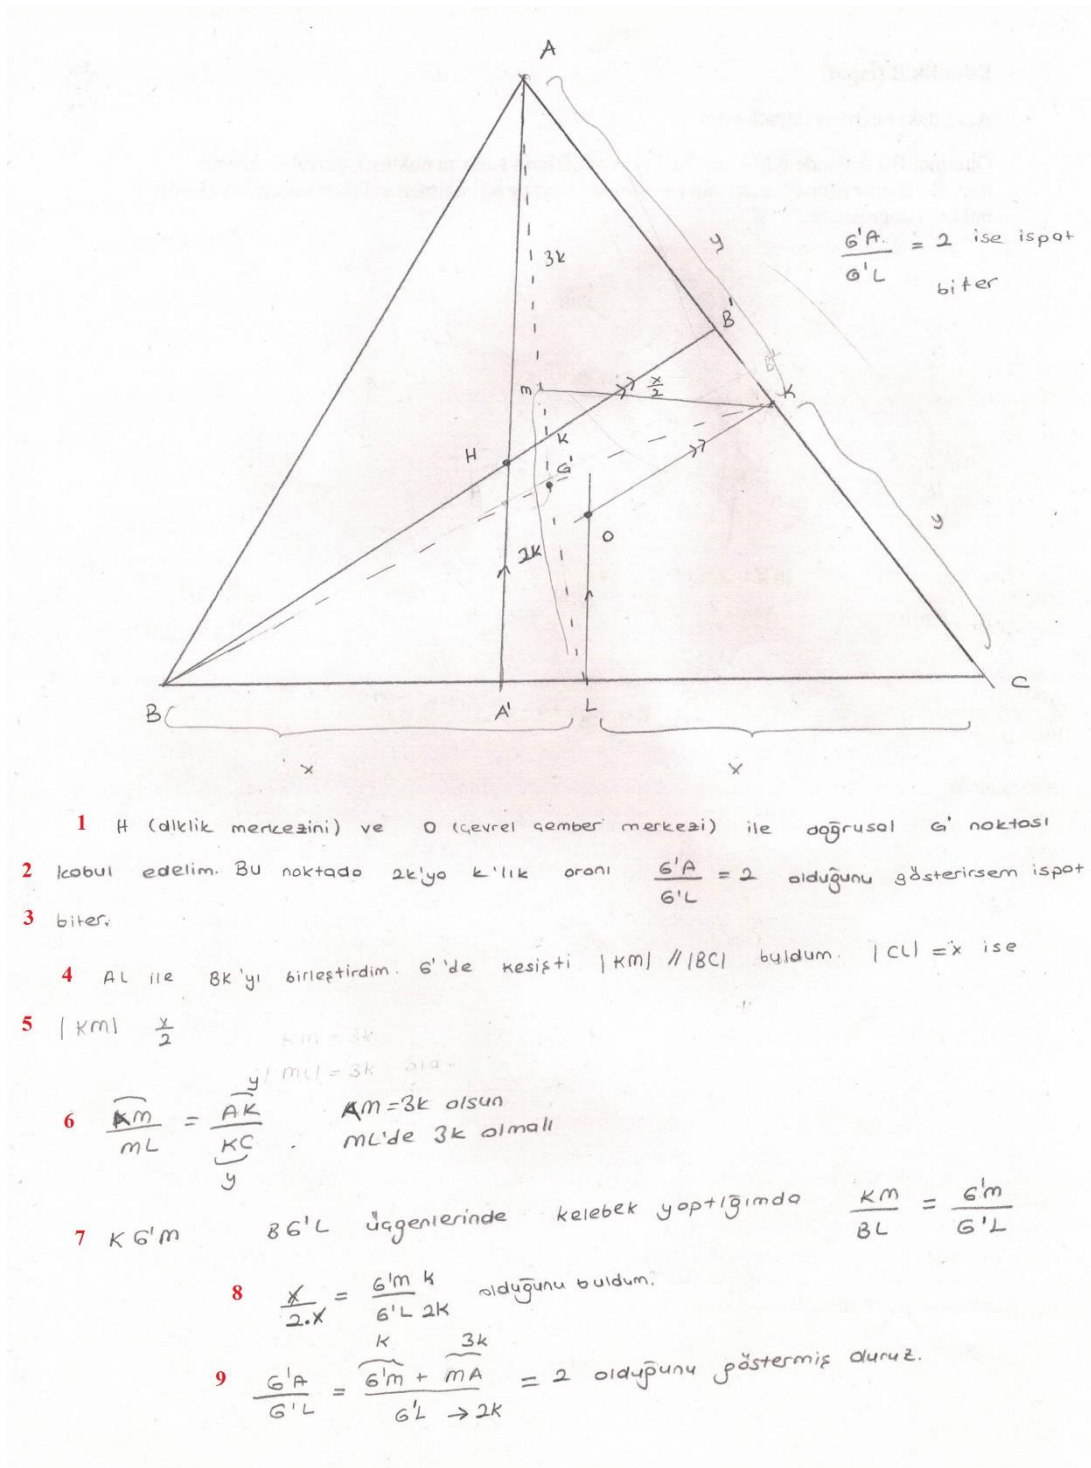 A
3k
y
G'A / G'L = 2 ise ispat
biter
B'
m
x/2
K
H
k
G'
y
O
2k
B
A'
L
C
x
x
1 H (diklik merkezini) ve O (çevrel çember merkezi) ile doğrusal G' noktası
2 kabul edelim. Bu noktada 2k'ya k'lık oranı G'A / G'L = 2 olduğunu gösterirsem ispat
3 biter.
4 AL ile BK'yı birleştirdim. G'de kesişti |KM| // |BC| buldum. |CL| = x ise
5 |KM| x/2
6 AM / ML = AK / KC . y y AM = 3k olsun
ML'de 3k olmalı
7 KG'M BG'L üçgenlerinde kelebek yaptığımda KM / BL = G'M / G'L
8 x / 2.x = G'M k / G'L 2k olduğunu buldum.
k 3k
9 G'A / G'L = G'M + MA / G'L → 2k = 2 olduğunu göstermiş oluruz.